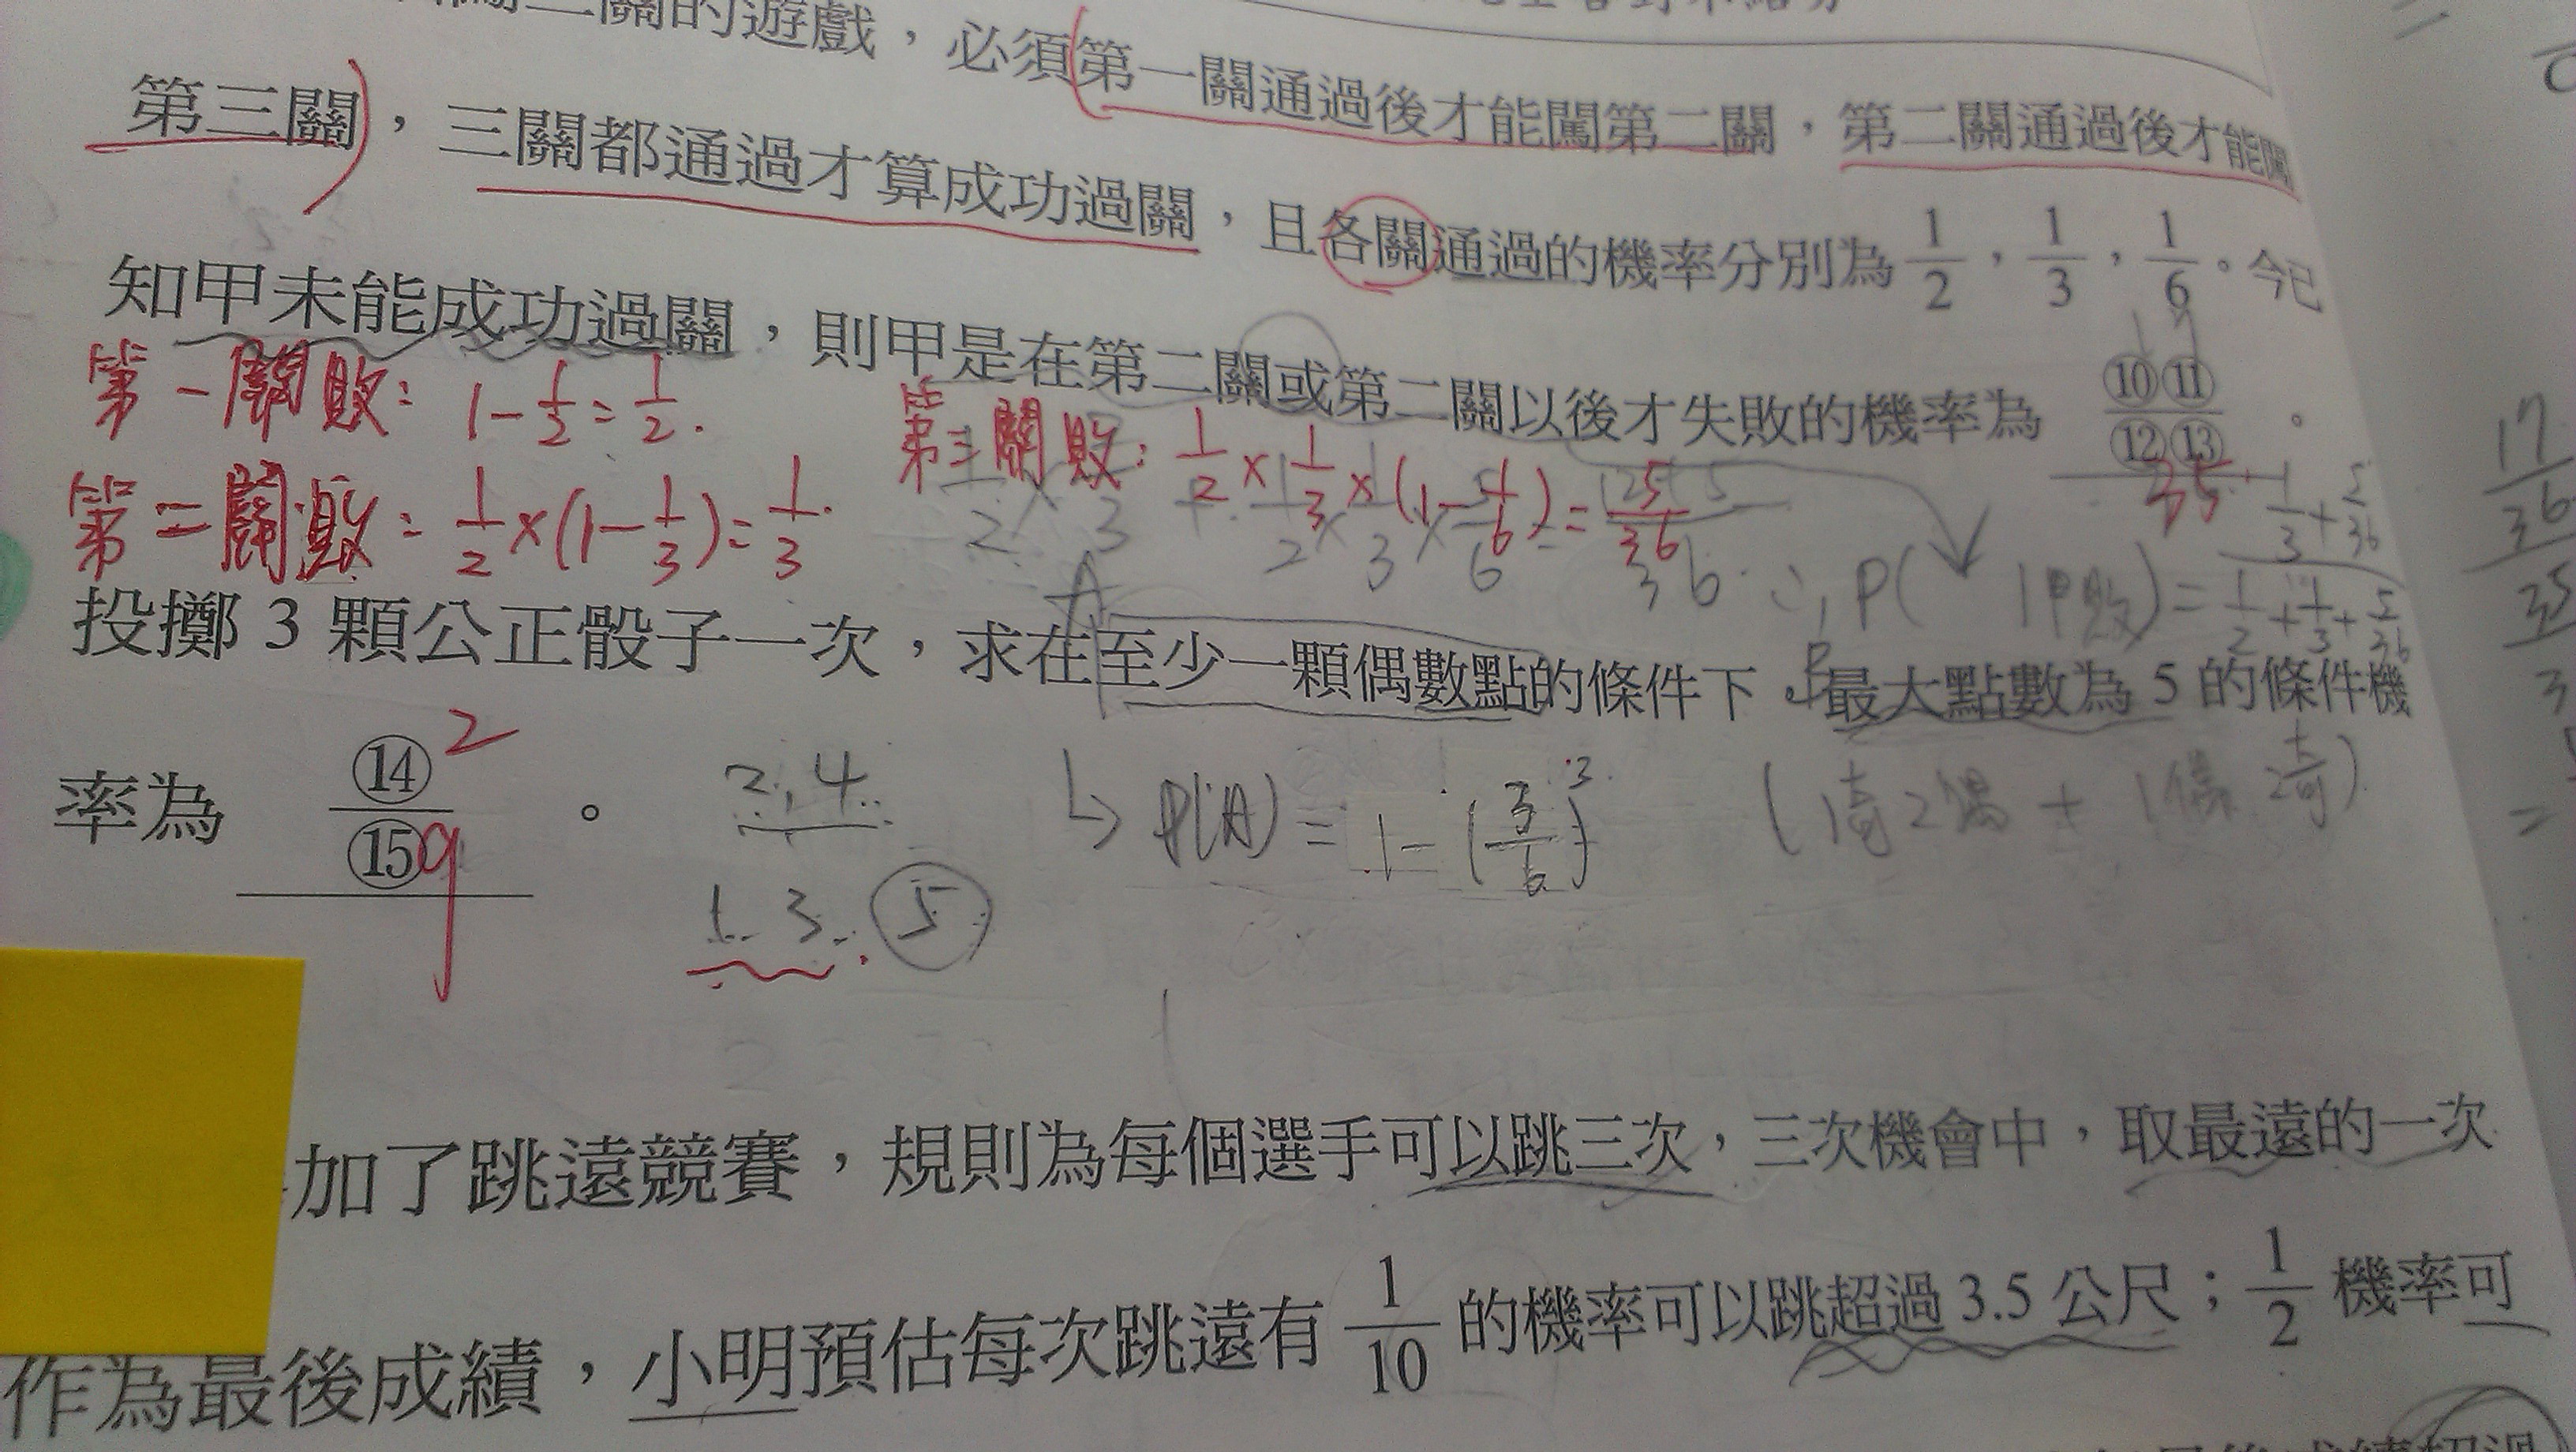 關的遊戲，必須第一關通過後才能闖第二關，第二關通過後才能闖
第三關，三關都通過才算成功過關，且各關通過的機率分別為 1/2，1/3，1/6。今已
知甲未能成功過關，則甲是在第二關或第二關以後才失敗的機率為 ⑩⑪/⑫⑬。
35
第一關敗：1-1/2=1/2.
第三關敗：1/2×1/3×(1-1/6)=5/36
第二關敗：1/2×(1-1/3)=1/3.
∴P( |甲敗)=1/3+5/36 / 1/2+1/3+5/36
17/36
35
投擲 3 顆公正骰子一次，求在至少一顆偶數點的條件下，最大點數為 5 的條件機
A
B
率為 ⑭/⑮。
2
9
2,4
1 3 ⑤
↳ P(A)=1-(3/6)³
(1奇2偶+1偶2奇)
加了跳遠競賽，規則為每個選手可以跳三次，三次機會中，取最遠的一次
作為最後成績，小明預估每次跳遠有 1/10 的機率可以跳超過 3.5 公尺；1/2 機率可